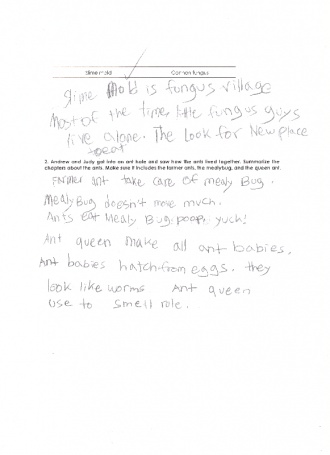 Slime mold Common fungus
Slime Mold is fungus village
Most of the time, little fungus guys
live alone. The Look for New place
to eat
2. Andrew and Judy got into an ant hole and saw how the ants lived together. Summarize the
chapters about the ants. Make sure it includes the farmer ants, the mealybug, and the queen ant.
Farmer ant take care of mealy Bug.
Mealy Bug doesn't move much.
Ants Eat Mealy Bug poop, yuck!
Ant queen make all ant babies.
Ant babies hatch from eggs. they
look like worms Ant queen
use to smell rule.